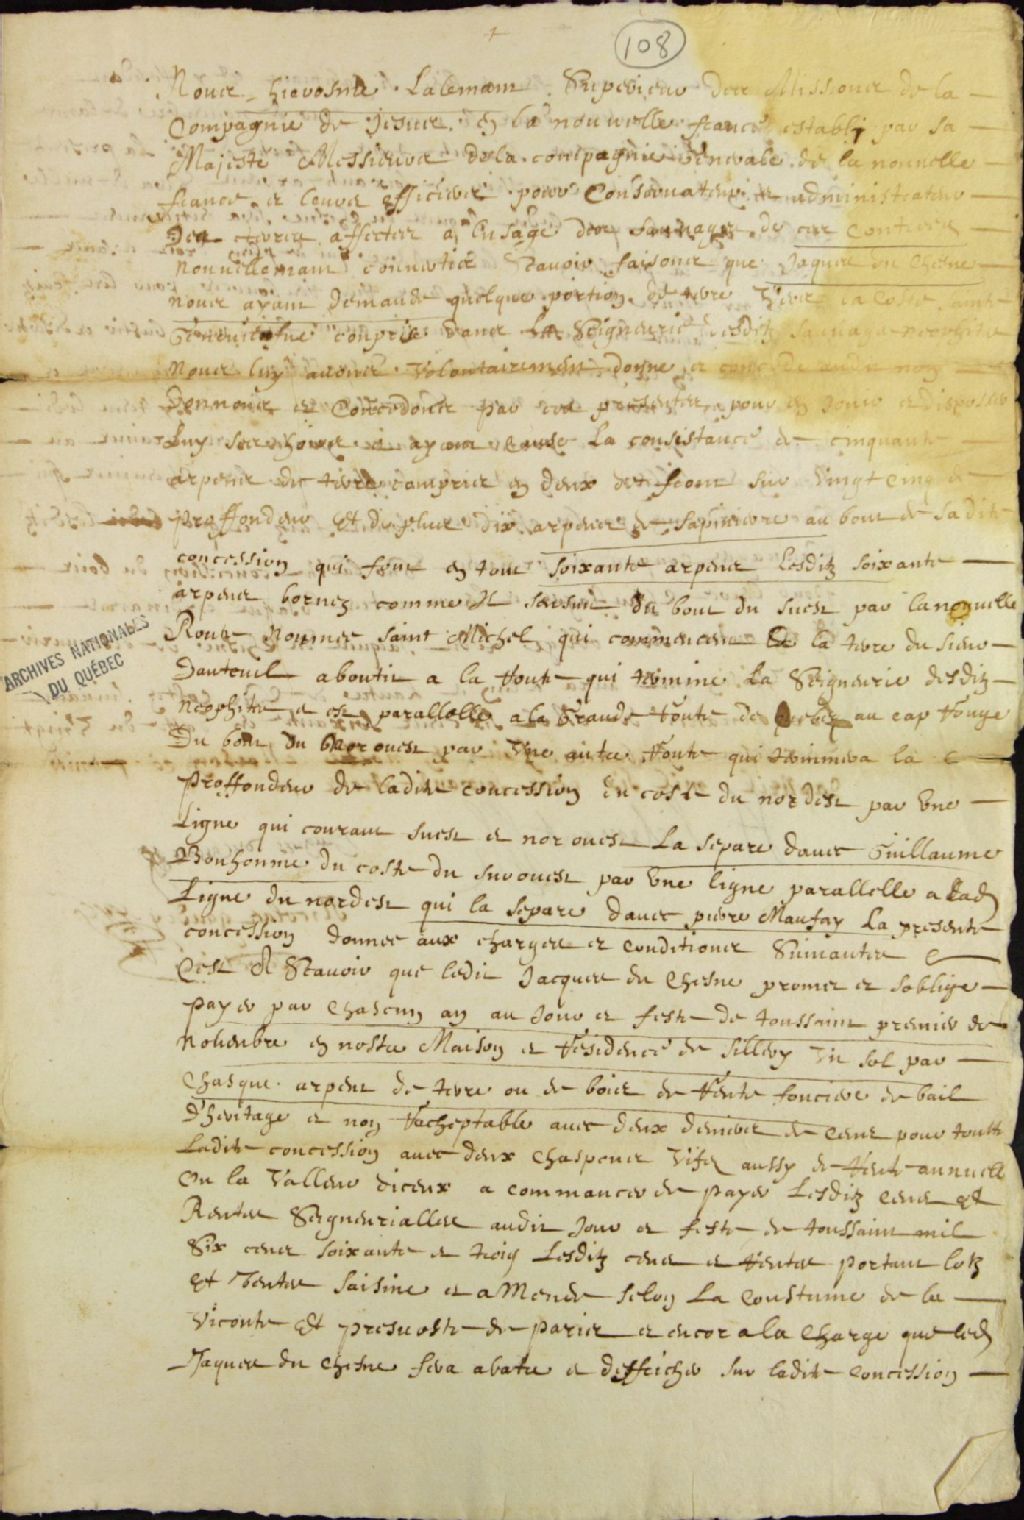 108
Nous hierosme Lalemant Superieur des Missions de la
Compagnie de Jesus en la nouvelle france establi par sa
Majesté Messieurs dela compagnie Generale de la nouvelle
france et leurs officiers pour Conservateur et administrateur
Des terres affectees a lusage des sauvages de ces contrees
Nouvellement convertis Scavoir faisons que Jaques du Chesne
nous ayant demandé quelque portion de terre vers la Coste sainte
Geneviefue comprise dans la Seigneurie desditz sauvages neophites
Nous luy avons volontairement donné et concedé
Donnons et Concedons par ces presentes pour en Jouir et disposer
Luy ses hoirs et ayant cause La consistance de cinquante
arpens de terre compris en deux de front sur vingt cinq de
proffondeur Et de plus dix arpens de sapiniere au bout de sadite
concession qui font en tout soixante arpens Lesditz soixante
arpens bornez comme Il sensuit du bout du suest par lanouvelle
Route nommee saint Michel qui commencera la terre du sieur
Dauteuil aboutir a la Route qui termine La Seigneurie desditz
Neophites et est parallelle a la Grande Route de Quebec au cap Rouge
Du bout du Norouest par une autre Route qui terminera la
Proffondeur de ladite concession du coste du nordest par une
Ligne qui courant suest et norouest La separe davec Guillaume
Bonhomme du coste du surouest par une ligne parallelle a Lad
Ligne du nordest qui la separe davec pierre Maufay La presente
concession donnee aux charges et conditions Suivantes
Cest A Scavoir que ledit Jacques du Chesne promet et soblige
payer par Chascun an au Jour et feste de toussaint premier de
Novenbre en nostre Maison et Residence de Sillery un sol par
Chasque arpent de terre ou de bois de Rente fonciere de bail
d'heritage et non Racheptable avec deux deniers de Cens pour toutte
Ladite concession avec deux Chaspons vifz aussy de Rente annuelle
Ou la Valleur diceux a commancer de payer Lesditz Cens Et
Rentes Seigneurialles audit Jour et feste de toussaint mil
Six cens soixante et trois Lesditz cens et Rentes portant lotz
Et Ventes saisine et aMende selon La Coustume de la
Viconte Et presvoste de paris et encor a la Charge que led
Jaques du Chesne fera abatre et deffricher sur ladite Concession
ARCHIVES NATIONALES
DU QUÉBEC